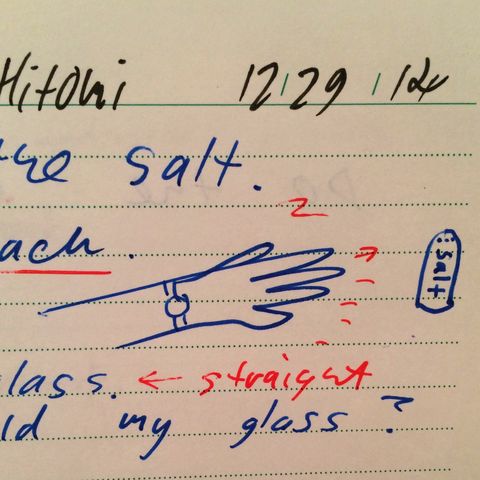 Hitomi 12/29/14
the salt.
each.
salt
glass. ← straight
ld my glass?